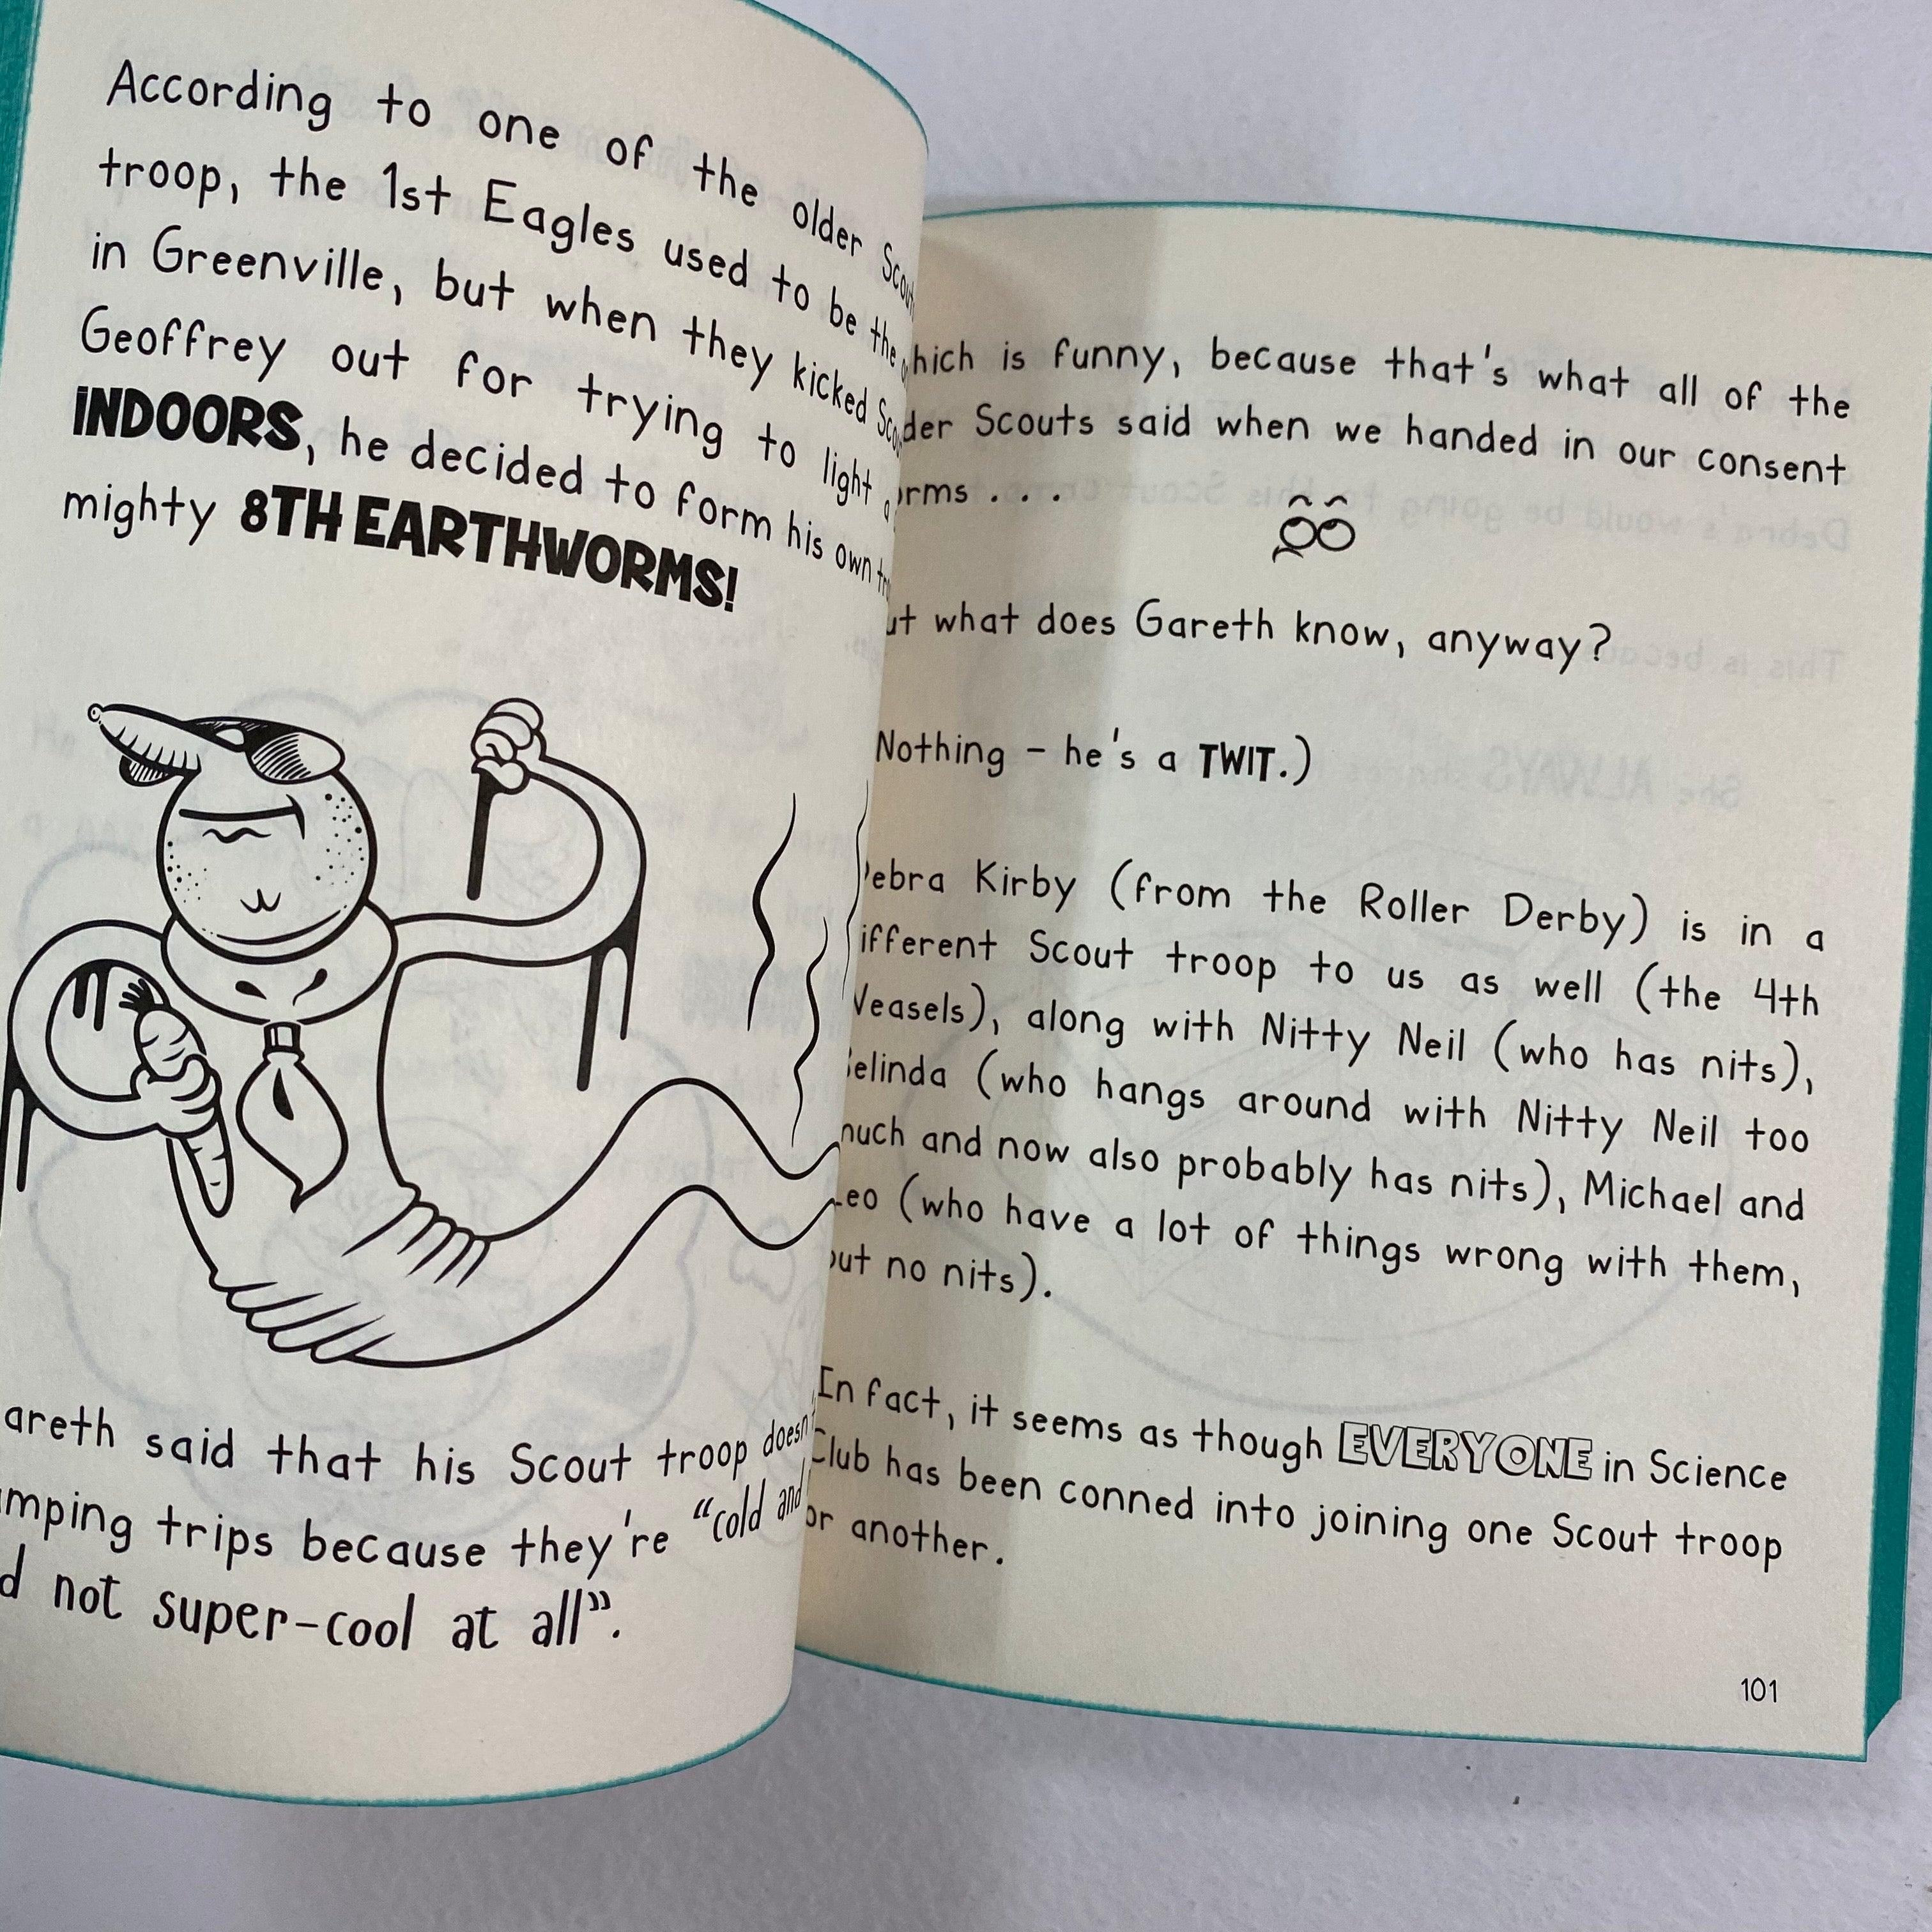 According to one of the older
troop, the 1st Eagles used to be the
in Greenville, but when they kicked
Geoffrey out for trying to light a
INDOORS, he decided to form his own
mighty 8TH EARTHWORMS!
areth said that his Scout troop
mping trips because they're "cold and
d not super-cool at all".
hich is funny, because that's what all of the
der Scouts said when we handed in our consent
rms . . .
ut what does Gareth know, anyway?
Nothing – he's a TWIT.)
ebra Kirby (from the Roller Derby) is in a
ifferent Scout troop to us as well (the 4th
easels), along with Nitty Neil (who has nits),
elinda (who hangs around with Nitty Neil too
uch and now also probably has nits), Michael and
eo (who have a lot of things wrong with them,
ut no nits).
In fact, it seems as though EVERYONE in Science
Club has been conned into joining one Scout troop
or another.
101